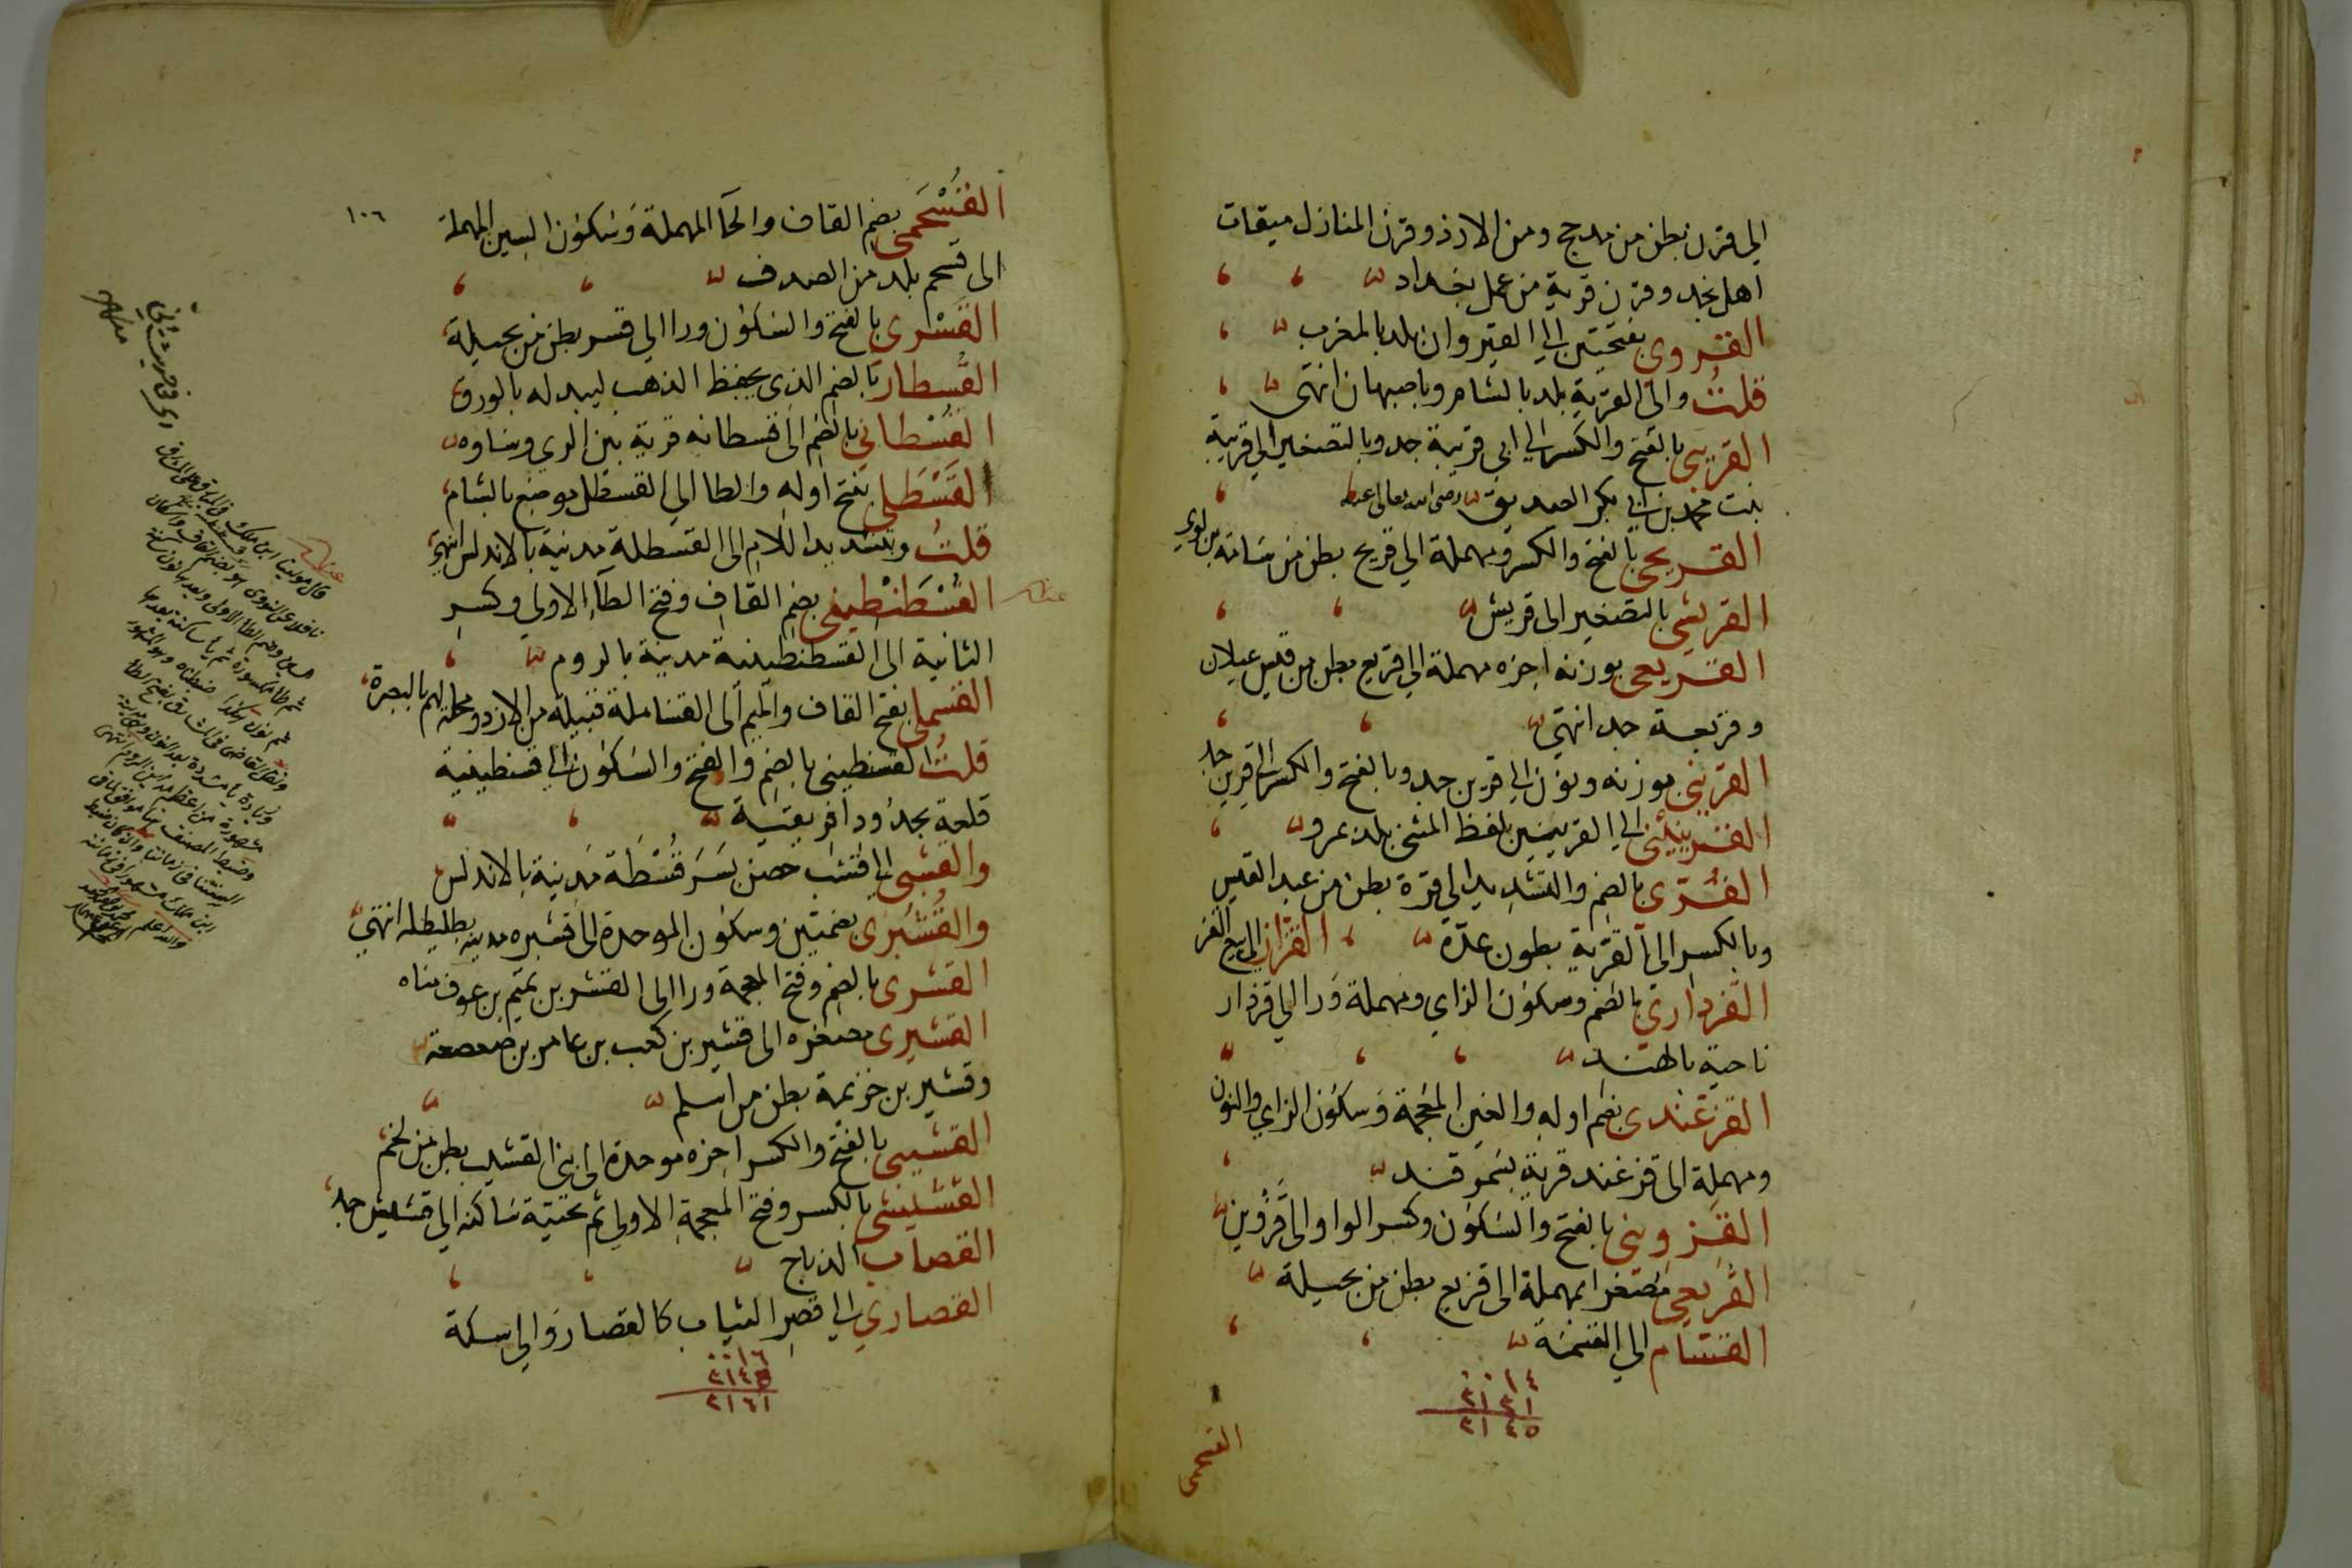 الى قرن بطن من مدحج ومن الازد وقرن المنازل ميقات
اهل نجد وقرن قرية من عمل بغداد
القروى بفتحتين الى القيروان بلد بالمغرب
قلت والى القرية بلد بالشام وباصبهان انتهى
القريبى بالفتح والكسر الى ابى قريبة جد وبالتصغير الى قريبة
بنت محمد بن ابى بكر الصديق رضى الله تعالى عنه
القريحى بالفتح والكسر ومهملة الى قريح بطن من سامة بن لوى
القريشى بالتصغير الى قريش
القريعى بوزنه اخره مهملة الى قريع بطن من قيس عيلان
وقريعة جد انتهى
القرينى بوزنه ونون الى قرين جد وبالفتح والكسر الى قرين جد
القرينينى الى القرينين بلفظ المثنى بلد بمرو
القرى بالضم والتشديد الى قرة بطن من عبد القيس
وبالكسر الى القرية بطون عدة القزاز الى بيع القز
القزدارى بالضم وسكون الزاى ومهملة ورا الى قزدار
ناحية بالهند
القزغندى بضم اوله والغين المعجمة وسكون الزاى والنون
ومهملة الى قزغند قرية بسمرقند
القزوينى بالفتح والسكون وكسر الواو الى قزوين
القزيعى مصغرا بمهملة الى قزيع بطن من بجيلة
القسام الى القسمة
٠٠١٤
٢١٣١
٢١٤٥
القسحمى
١٠٦
القسحمى بضم القاف والحا المهملة وسكون السين المهملة
الى قسحم بلد من الصدف
القسرى بالفتح والسكون ورا الى قسر بطن من بجيلة
القسطار بالضم الذى يحفظ الذهب ليبدله بالورق
القسطانى بالضم الى قسطانه قرية بين الرى وساوه
القسطلى بفتح اوله والطا الى القسطل موضع بالشام
قلت وبتشديد اللام الى القسطلة مدينة بالاندلس انتهى
القسطنطينى بضم القاف وفتح الطا الاولى وكسر
الثانية الى القسطنطينية مدينة بالروم
القسملى بفتح القاف والميم الى القساملة قبيلة من الازد ومحلة لهم بالبصرة
قلت القسنطينى بالضم والفتح والسكون الى قسنطينية
قلعة بحدود افريقية
والقشبى الى قشب حصن بسرقسطة مدينة بالاندلس
والقشبرى بضمتين وسكون الموحدة الى قشبره مدينة بطليطله انتهى
القشرى بالضم وفتح المعجمة ورا الى القشر بن تميم بن عوف مناه
القشيرى مصغره الى قشير بن كعب بن عامر بن صعصعة
وقشير بن خزيمة بطن من اسلم
القشيبى بالفتح والكسر اخره موحدة الى بنى القشيب بطن من لخم
القشيشى بالكسر وفتح المعجمة الاولى ثم تحتية ساكنه الى قشيش جد
القصاب الذباح
القصارى الى قصر الثياب كالقصار والى سكة
٠٠١٦
٢١٤٥
٢١٦١